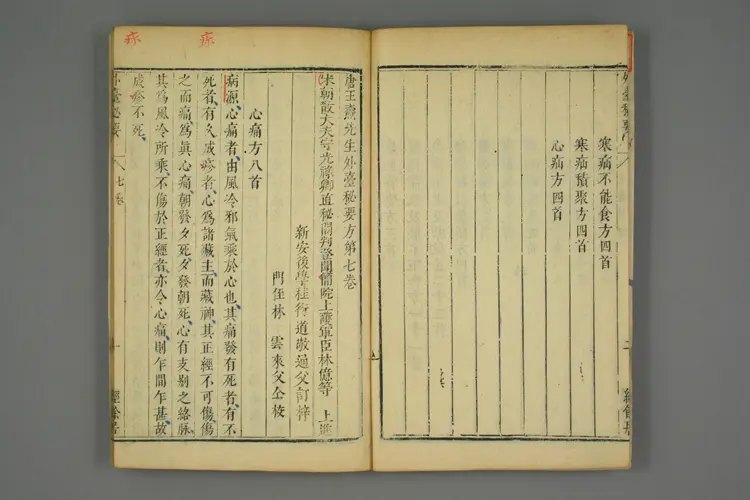 寒疝不能食方四首
寒疝積聚方四首
心疝方四首
唐王燾先生外臺秘要方第七卷
宋朝散大夫守光祿卿直秘閣判登聞檢院上護軍臣林億等 上進
新安後學程衍道敬通父訂梓
門侄林 雲來父仝校
心痛方八首
病源心痛者由風冷邪氣乘於心也其痛發有死者有不
死者有久成疹者心為諸臟主而藏神其正經不可傷傷
之而痛為真心痛朝發夕死夕發朝死心有支別之絡脉
其為風冷所乘不傷於正經者亦令心痛則乍間乍甚故
成疹不死
外臺秘要
七卷
一
經餘居
疹
疹
外臺秘要
二
經餘居